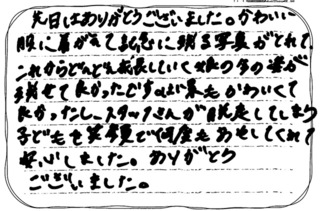 先日はありがとうございました。かわいい
服に着がえて記念に残る写真がとれて、
これからどんどん成長していく娘の今の姿が
残せて良かったです。背景もかわいくて
良かったし、スタッフさんが脱走してしまう
子どもを笑顔で何度もあやしてくれて
安心しました。ありがとう
ございました。